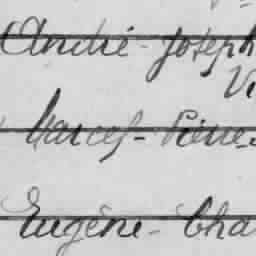 André-Joseph
Vi
Marcel-Pierre-
Eugène-Cha